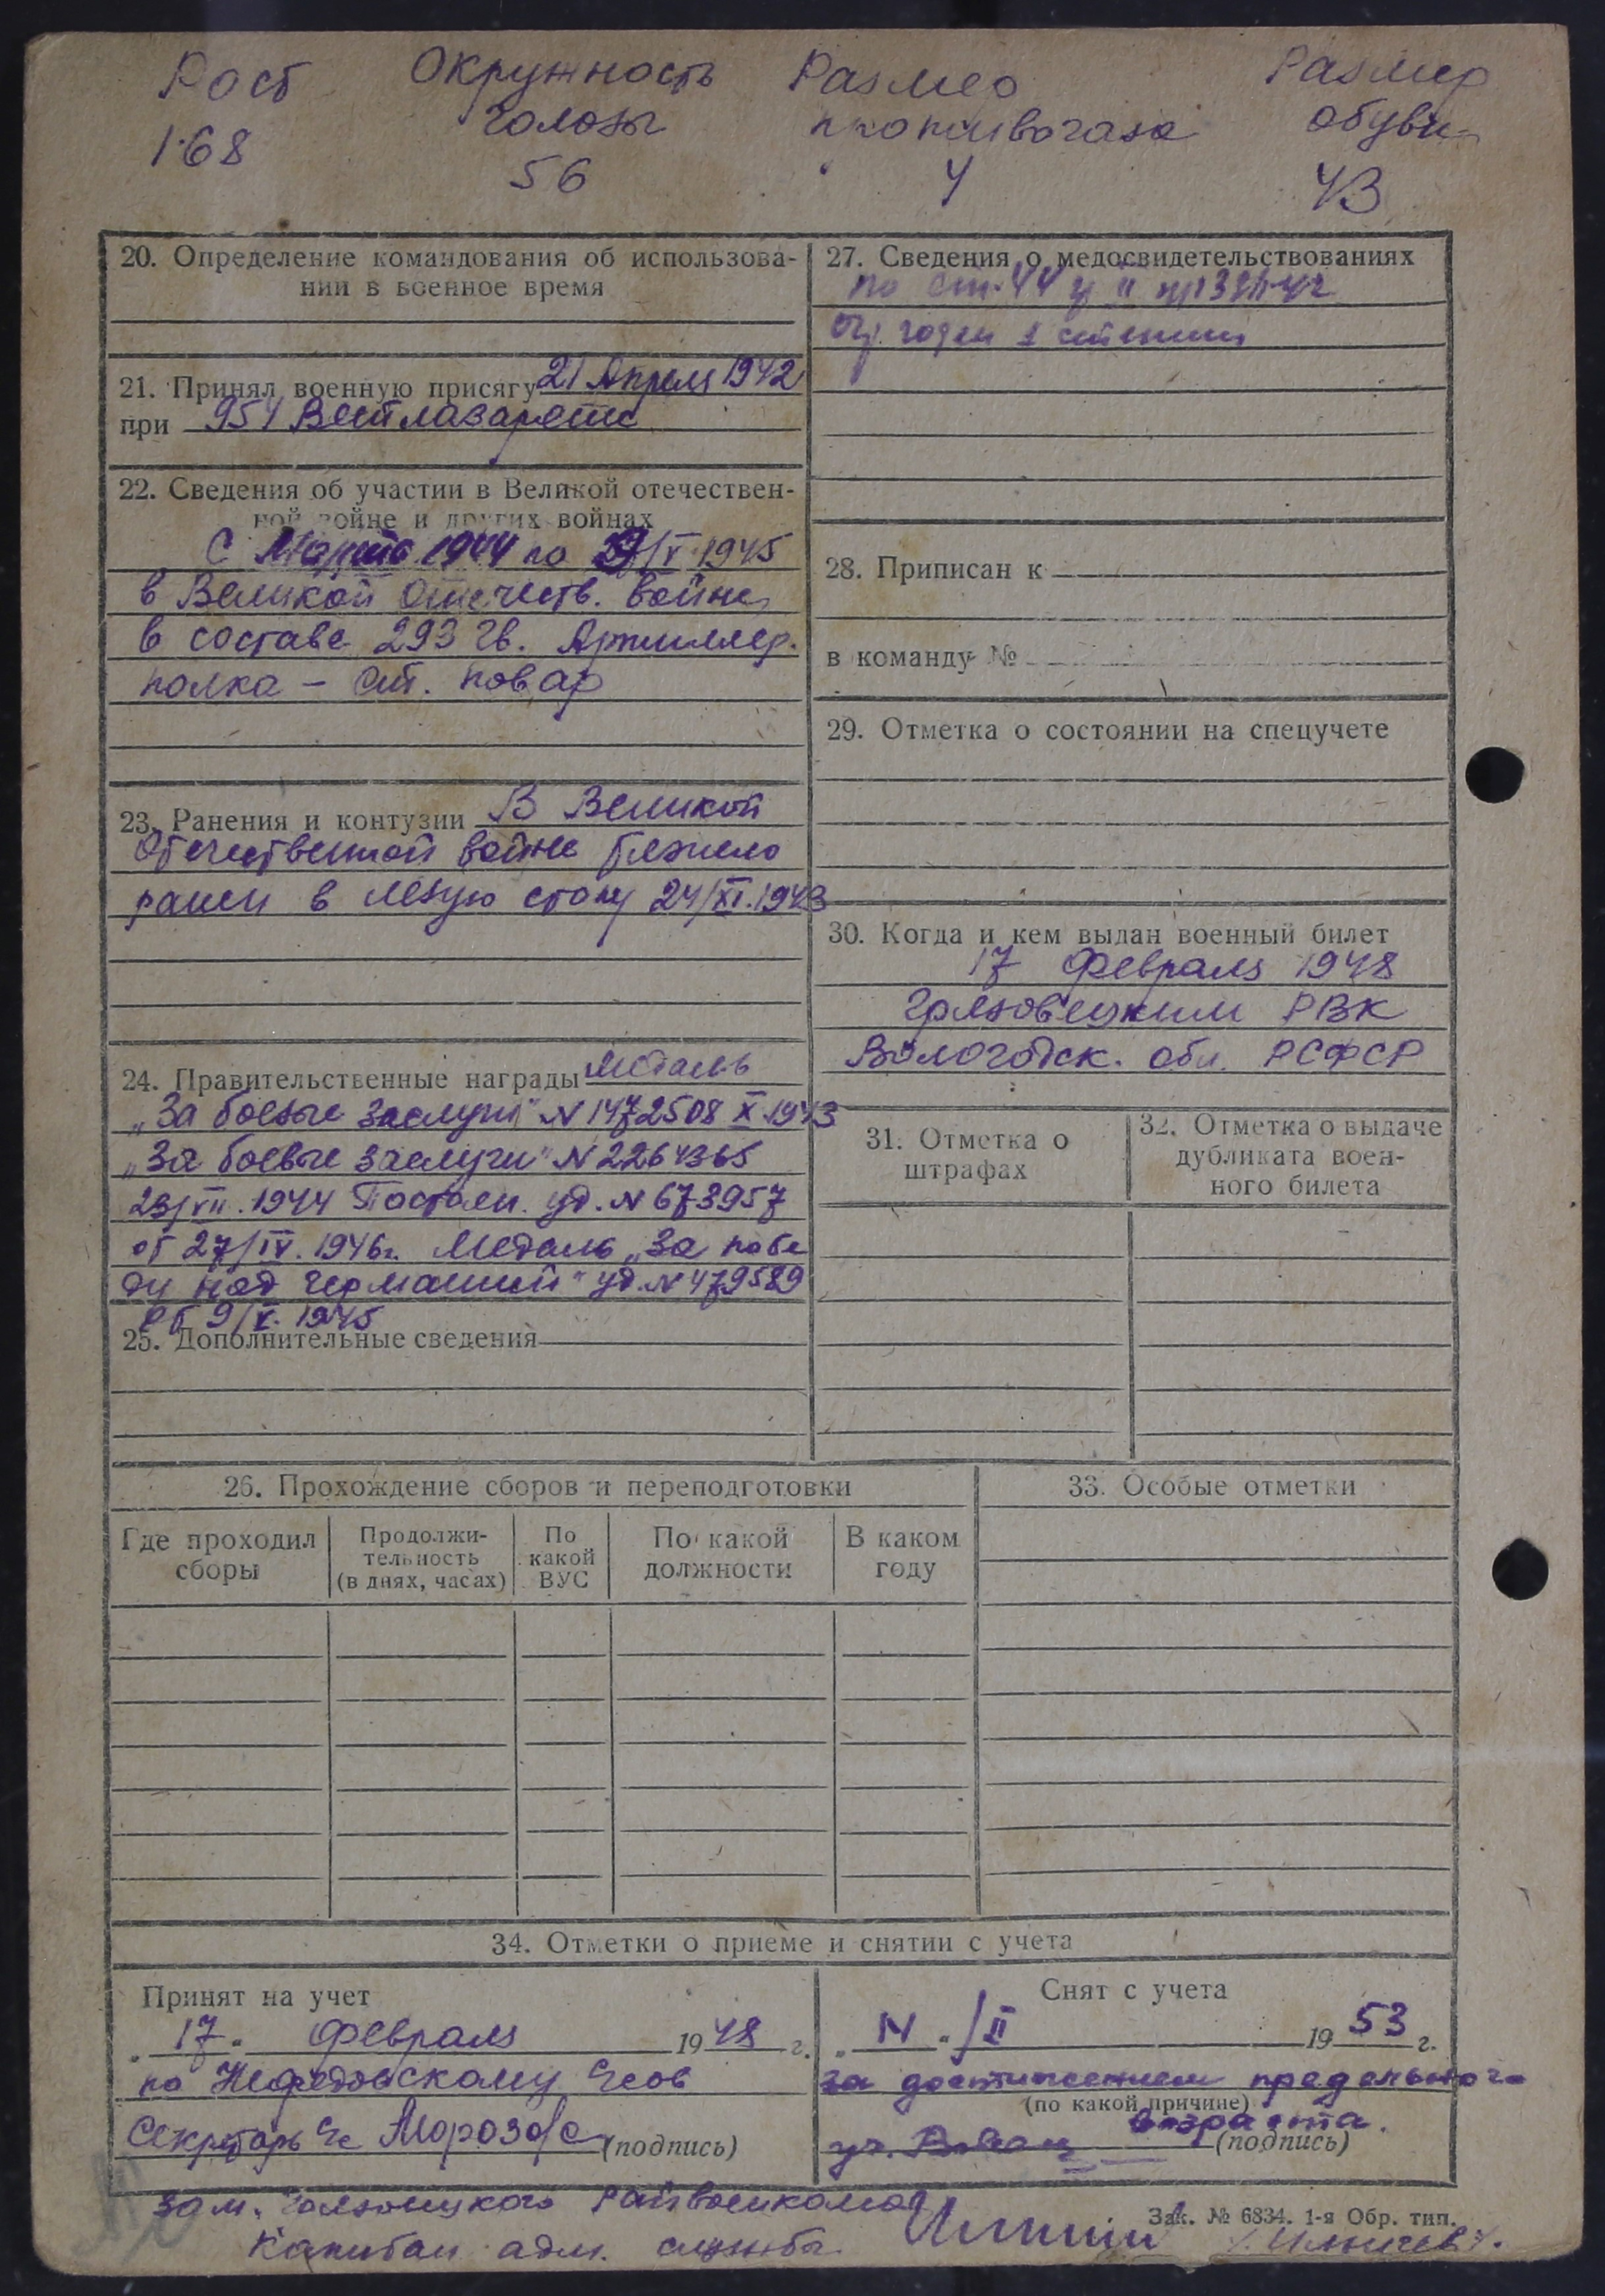 Рост Окружность Размер Размер
головы противогаза обуви
168 56 4 43
20. Определение командования об использова-
нии в военное время
21. Принял военную присягу 21 Апреля 1942
при 954 Ветлазарете
22. Сведения об участии в Великой отечествен-
ной войне и других войнах
С Марта 1944 по 9/V 1945
в Великой Отечеств. войне
в составе 293 Гв. Артиллер.
полка – Ст. повар
23. Ранения и контузии В Великой
Отечественной войне
ранен в левую стопу 24/XI.1943
24. Правительственные награды Медаль
„За боевые заслуги" N 1472508 X.1943
„За боевые заслуги" N 2264365
23/VII.1944 уд. N 673957
от 27/IV.1946г. Медаль „За побе
ду над германией" уд. N 479589
от 9/V. 1945
25. Дополнительные сведения
26. Прохождение сборов и переподготовки
Где проходил
сборы
Продолжи-
тельность
(в днях, часах)
По
какой
ВУС
По какой
должности
В каком
году
27. Сведения о медосвидетельствованиях
по ст. 44
годен
28. Приписан к
в команду №
29. Отметка о состоянии на спецучете
30. Когда и кем выдан военный билет
17 Февраля 1948
Грязовецким РВК
Вологодск. обл. РСФСР
31. Отметка о
штрафах
32. Отметка о выдаче
дубликата воен-
ного билета
33. Особые отметки
34. Отметки о приеме и снятии с учета
Принят на учет
„17" Февраля 1948 г.
по Нефедовскому
Секретарь Морозова (подпись)
Снят с учета
„ " /II 1953 г.
за достижением предельного
(по какой причине)
возраста.
(подпись)
Зам. райвоенкома
Капитан адм. службы
Зак. № 6834. 1-я Обр. тип.